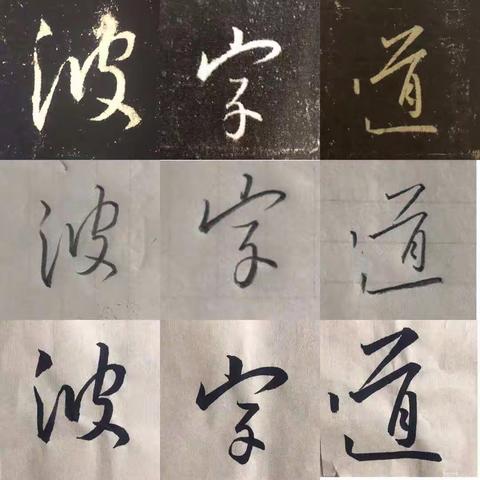 波字道
波字道
波字道